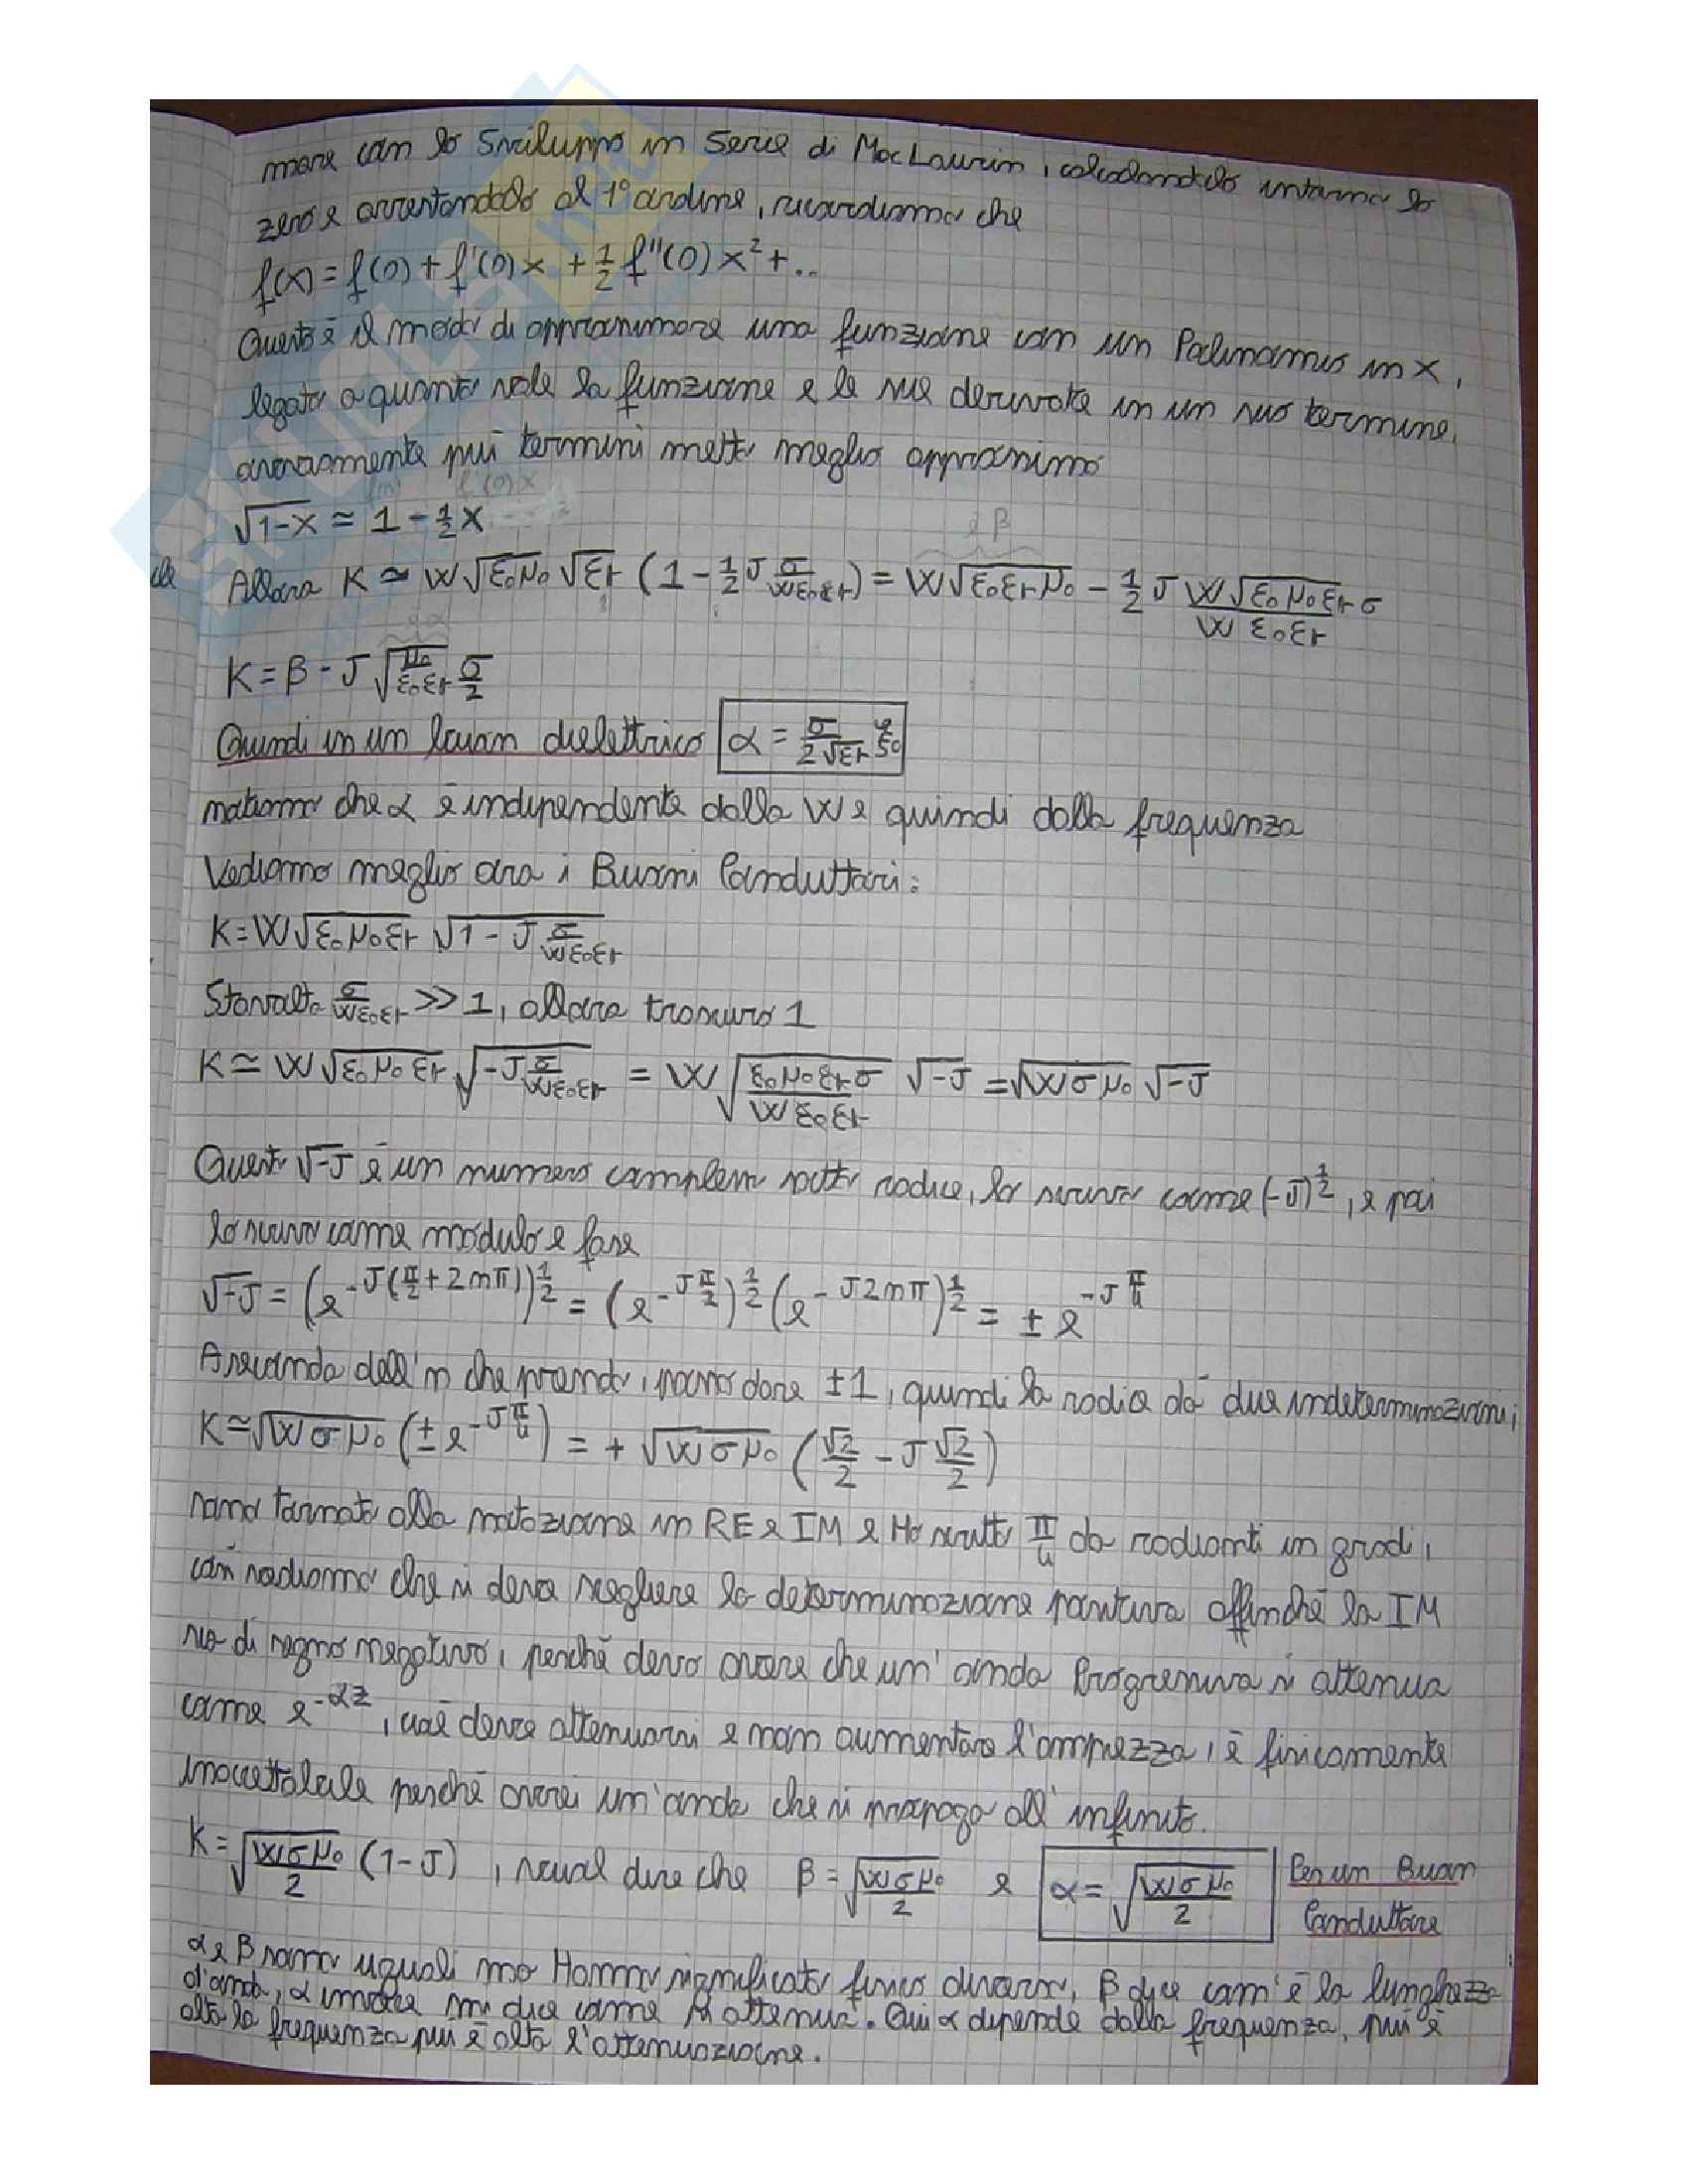 mare con lo Sviluppo in Serie di MacLaurin, calcolandolo intorno lo
zero e arrestandolo al 1° ordine, ricordiamo che
f(x) = f(0) + f'(0)x + 1/2 f''(0)x² + ..
Questo è il modo di approssimare una funzione con un Polinomio in x,
legato a quanto vale la funzione e le sue derivate in un suo termine,
ovviamente più termini metto meglio approssimo
f(0) f'(0)x
√(1-x) ≃ 1 - 1/2 x
è β
Allora K ≃ W√(ε₀μ₀) √εr (1 - 1/2 J σ/(Wε₀εr)) = W√(ε₀εrμ₀) - 1/2 J (W√(ε₀μ₀εr) σ)/(W ε₀εr)
è α
K = β - J √(μ₀/(ε₀εr)) σ/2
Quindi in un buon dielettrico α = σ/(2√εr) ξ₀
notiamo che α è indipendente dalla W e quindi dalla frequenza
Vediamo meglio ora i Buoni Conduttori:
K = W√(ε₀μ₀εr) √(1 - J σ/(Wε₀εr))
Stavolta σ/(Wε₀εr) >> 1, allora trascuro 1
K ≃ W√(ε₀μ₀εr) √(-J σ/(Wε₀εr)) = W √((ε₀μ₀εrσ)/(Wε₀εr)) √-J = √(Wσμ₀) √-J
Questo √-J è un numero complesso sotto radice, lo scrivo come (-J)^1/2, e poi
lo scrivo come modulo e fase
√-J = (e^-J(π/2+2nπ))^1/2 = (e^-Jπ/2)^1/2 (e^-J2nπ)^1/2 = ± e^-Jπ/4
A seconda dell'n che prendo, posso dare ±1, quindi la radice dà due indeterminazioni;
K ≃ √(Wσμ₀) (± e^-Jπ/4) = + √(Wσμ₀) (√2/2 - J √2/2)
sono tornato alla notazione in RE e IM e Ho scritto π/4 da radianti in gradi,
così vediamo che si deve scegliere la determinazione positiva affinché la IM
sia di segno negativo, perché devo avere che un'onda Progressiva si attenua
come e^-αz, cioè deve attenuarsi e non aumentare l'ampiezza, è fisicamente
inaccettabile perché avrei un'onda che si propaga all'infinito.
K = √(Wσμ₀/2) (1-J), vuol dire che β = √(Wσμ₀/2) e α = √(Wσμ₀/2) Per un Buon
Conduttore
α e β sono uguali ma Hanno significato fisico diverso, β dice com'è la lunghezza
d'onda, α invece mi dice come si attenua. Qui α dipende dalla frequenza, più è
alta la frequenza più è alta l'attenuazione.